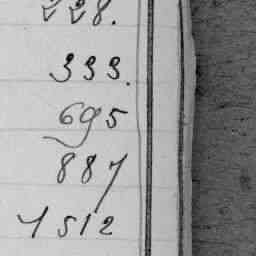 228.
333.
695
887
1512